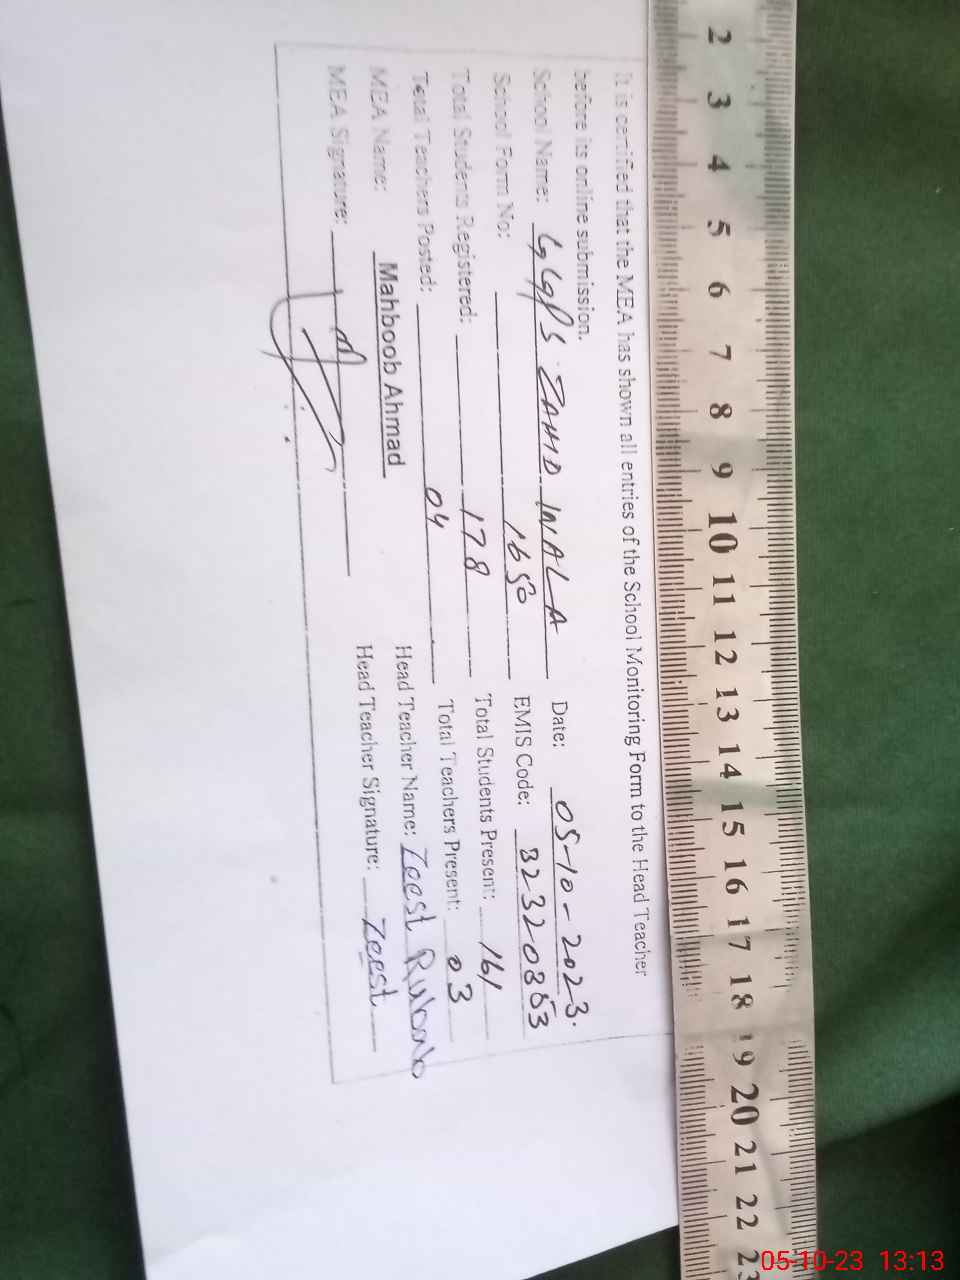 It is certified that the MEA has shown all entries of the School Monitoring Form to the Head Teacher
before its online submission.
School Name: GGPS ZAHID WALA Date: 05-10-2023.
School Form No: 1650 EMIS Code:
Total Students Registered: 178 Total Students Present: 161
Total Teachers Posted: 04 Total Teachers Present: 03
MEA Name: Mahboob Ahmad Head Teacher Name: Zeest Rubab
MEA Signature: Head Teacher Signature: Zeest
2 3 4 5 6 7 8 9 10 11 12 13 14 15 16 17 18 19 20 21 22 23
05-10-23 13:13